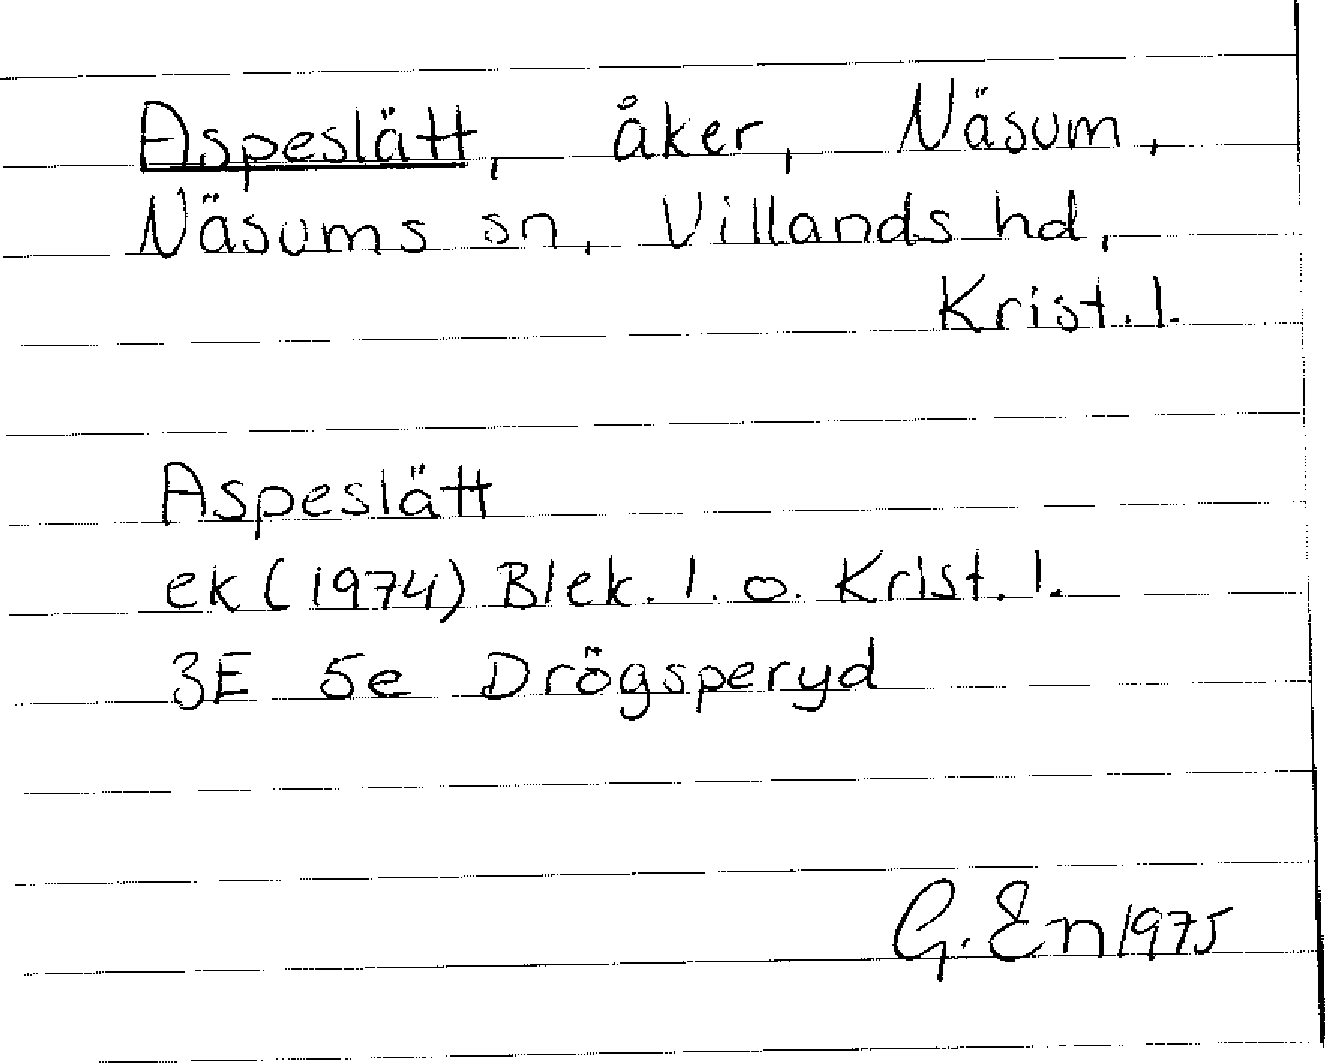 Aspeslätt, åker, Näsum,
Näsums sn, Villands hd,
Krist. l.
Aspeslätt
ek (1974) Blek. l. o. Krist. l.
3E 5e Drögsperyd
G. En 1975